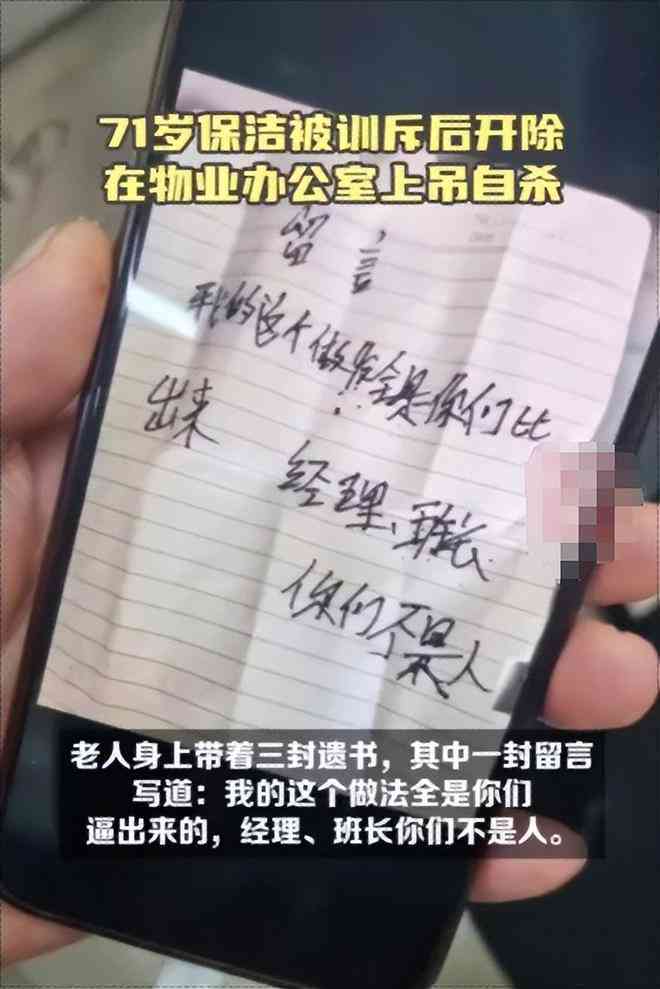 71岁保洁被训斥后开除
在物业办公室上吊自杀
留言
我的这个做法全是你们比
出来
经理、班长
你们不是人
老人身上带着三封遗书，其中一封留言
写道：我的这个做法全是你们
逼出来的，经理、班长你们不是人。